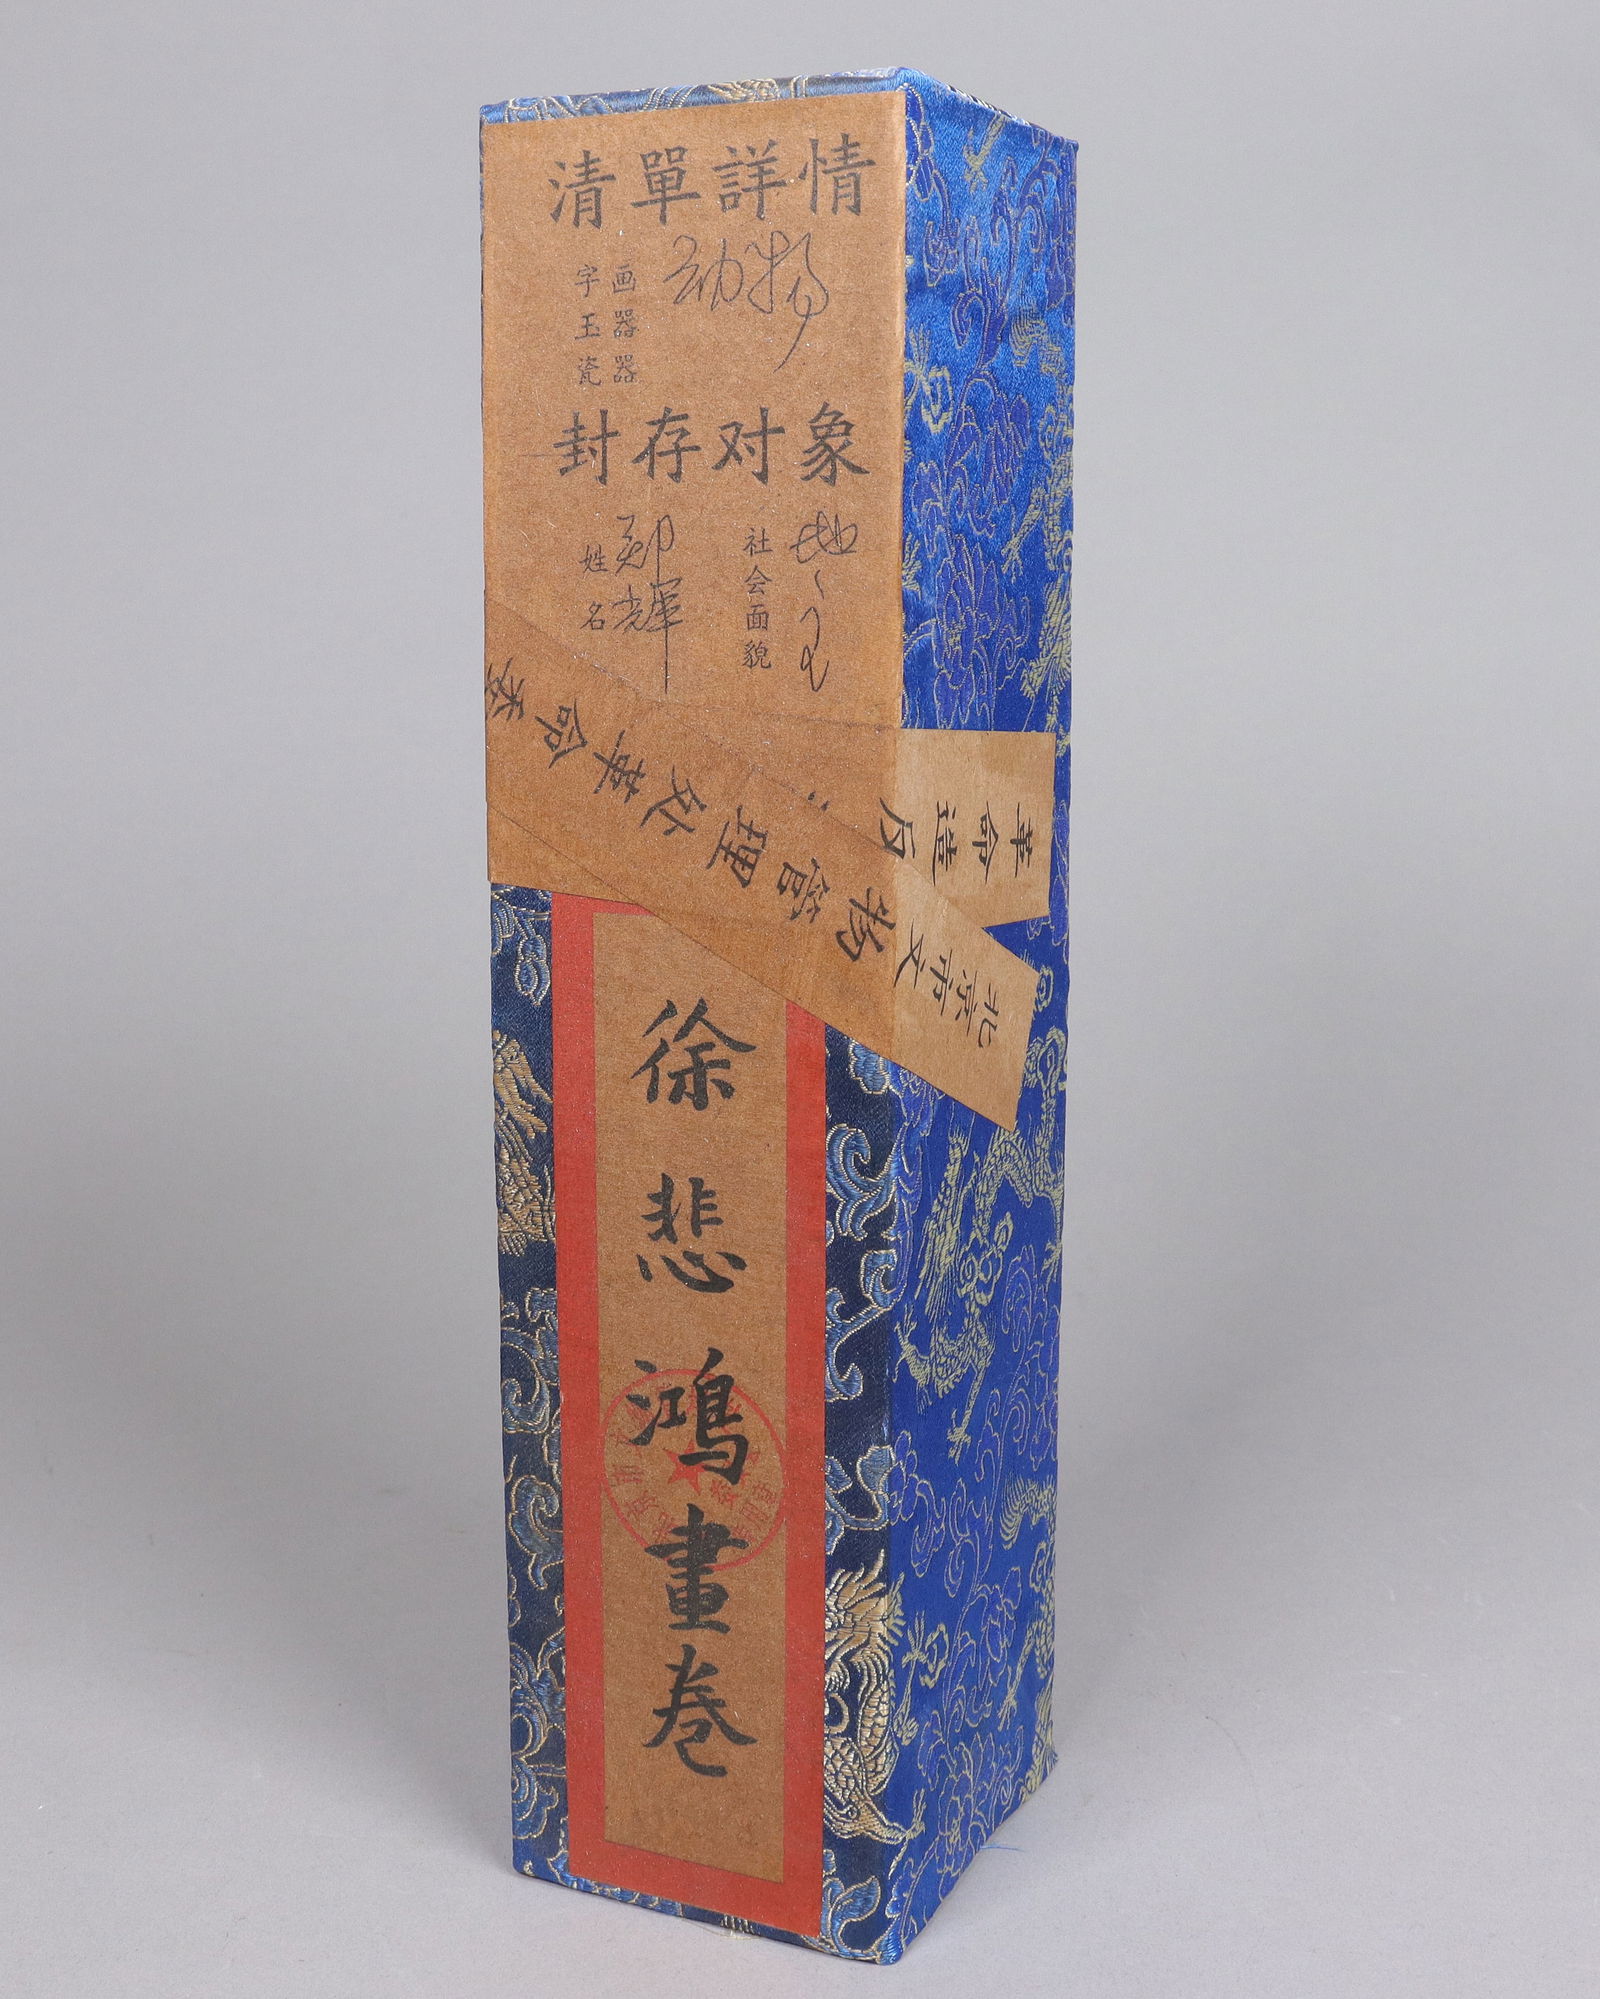 清單詳情
字画 动物
玉器
瓷器
封存对象
姓名 郑辉
社会面貌 地主
革命造反
北京市文物管理处革命委
徐悲鴻畫卷